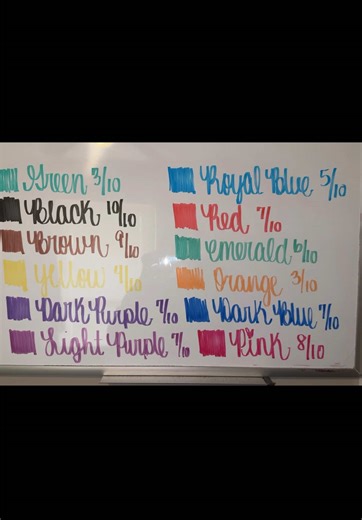 Green 3/10
Black 10/10
Brown 9/10
Yellow 4/10
Dark Purple 7/10
Light Purple 7/10
Royal Blue 5/10
Red 7/10
Emerald 6/10
Orange 3/10
Dark Blue 7/10
Pink 8/10